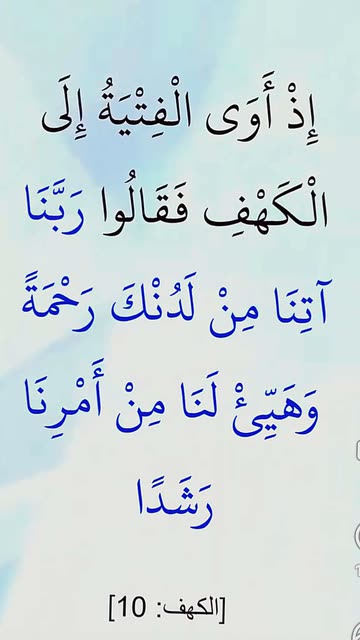 إِذْ أَوَى الْفِتْيَةُ إِلَى
الْكَهْفِ فَقَالُوا رَبَّنَا
آتِنَا مِنْ لَدُنْكَ رَحْمَةً
وَهَيِّئْ لَنَا مِنْ أَمْرِنَا
رَشَدًا
[الكهف: 10]